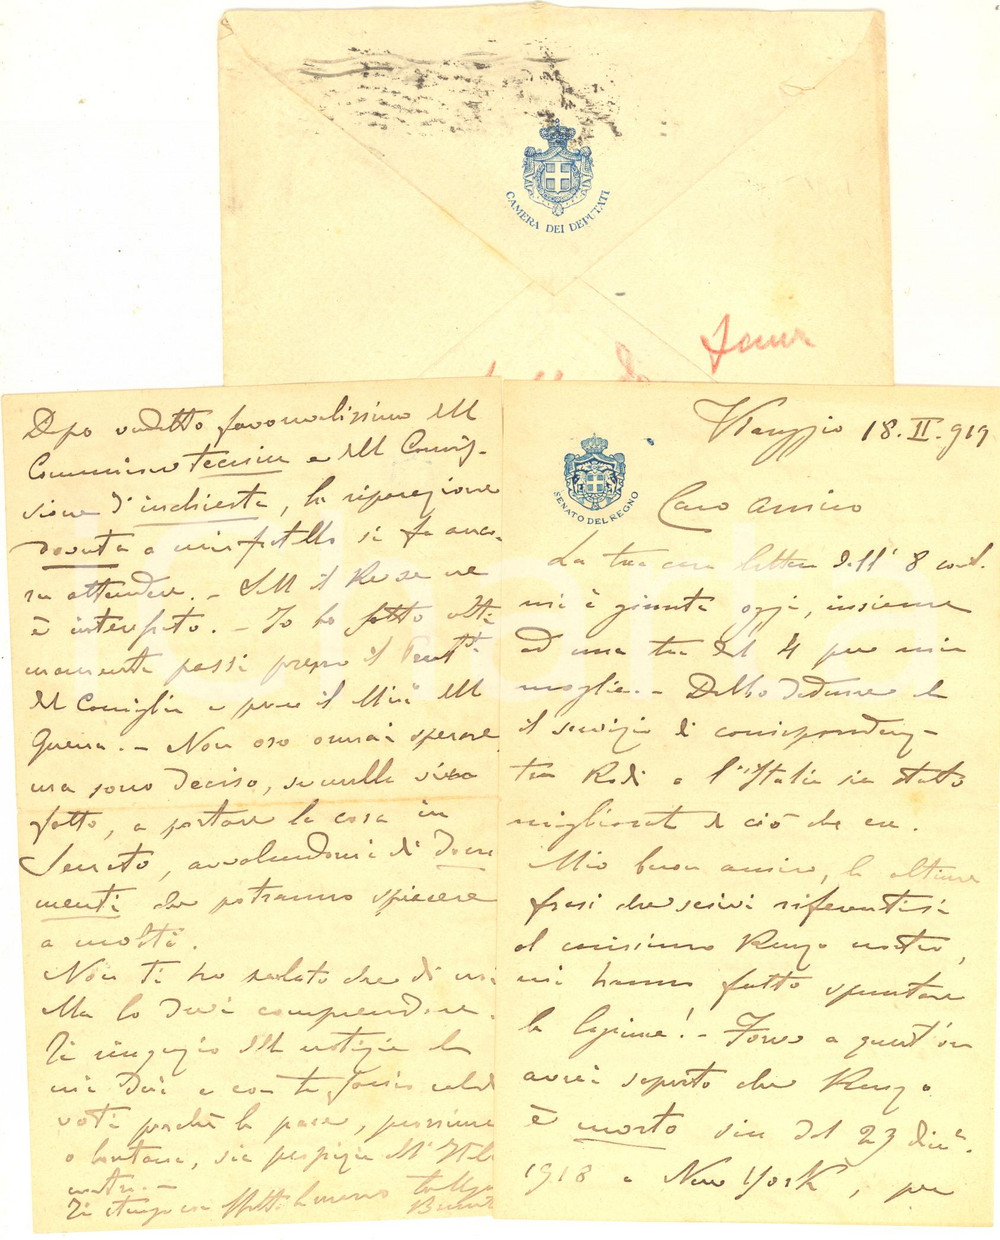 CAMERA DEI DEPUTATI
SENATO DEL REGNO
Viareggio 18.II.919
Caro amico
La tua cara lettera dell' 8 corr.
mi è giunta oggi, insieme
ad una tua del 4 per mia
moglie. - Debbo dedurre che
il servizio di corrispondenza
tra Rodi e l'Italia sia stato
migliorato di ciò che era.
Mio buon amico, le ultime
frasi che scrivi riferentisi
al carissimo Renzo nostro,
mi hanno fatto spuntare
le lagrime! - Forse a quest'ora
avrai saputo che Renzo
è morto sin dal 23 dic.
1918 a New York, per
Dopo verdetto favorevolissimo del
Commissione tecnica e della Commis-
sione d'inchiesta, la riparazione
dovuta a mio fratello si fa anco-
ra attendere. - Del il Re se ne
è interessato. - Io ho fatto ulti-
mamente passi presso il Presid.
del Consiglio e presso il Min. della
Guerra. - Non oso ormai sperare
ma sono deciso, se nulla sia
fatto, a portare la cosa in
Senato, avvalendomi di docu
menti che potranno spiacere
a molti.
Non ti ho parlato che di noi
Ma lo devi comprendere.
Ti ringrazio delle notizie che
mi dai e con te faccio caldi
voti perchè la pace, prossima
o lontana, sia propizia all'Italia
nostra. -
Ti